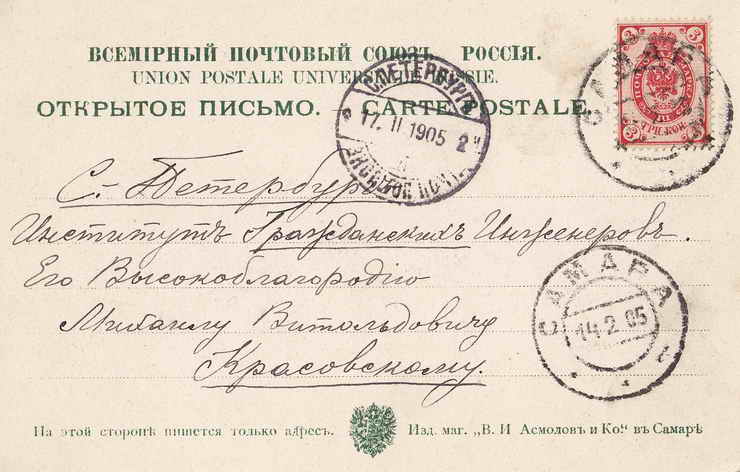 ВСЕМІРНЫЙ ПОЧТОВЫЙ СОЮЗЪ. РОССІЯ.
UNION POSTALE UNIVERSELLE RUSSIE.
ОТКРЫТОЕ ПИСЬМО. — CARTE POSTALE.
С.ПЕТЕРБУРГЪ
17. II 1905 2
САМАРА
3 3
3 3
С.-Петербургъ
Институтъ Гражданскихъ Инженеровъ.
Его Высокоблагородію
Михаилу Витольдовичу
Красовскому.
САМАРА
14 2 05
На этой сторонѣ пишется только адресъ.
Изд. маг. „В. И Асмоловъ и Ко" въ Самарѣ